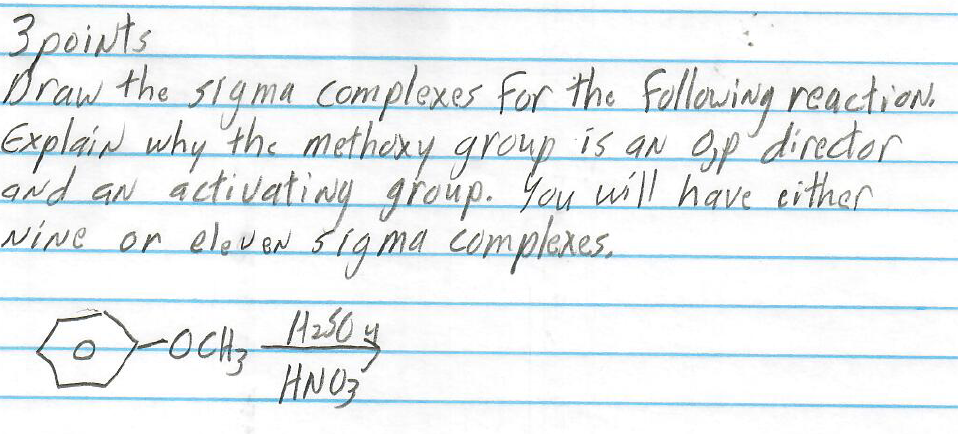 3 points
Draw the sigma complexes for the following reaction.
Explain why the methoxy group is an o,p director
and an activating group. You will have either
nine or eleven sigma complexes.
-OCH3 H2SO4
HNO3